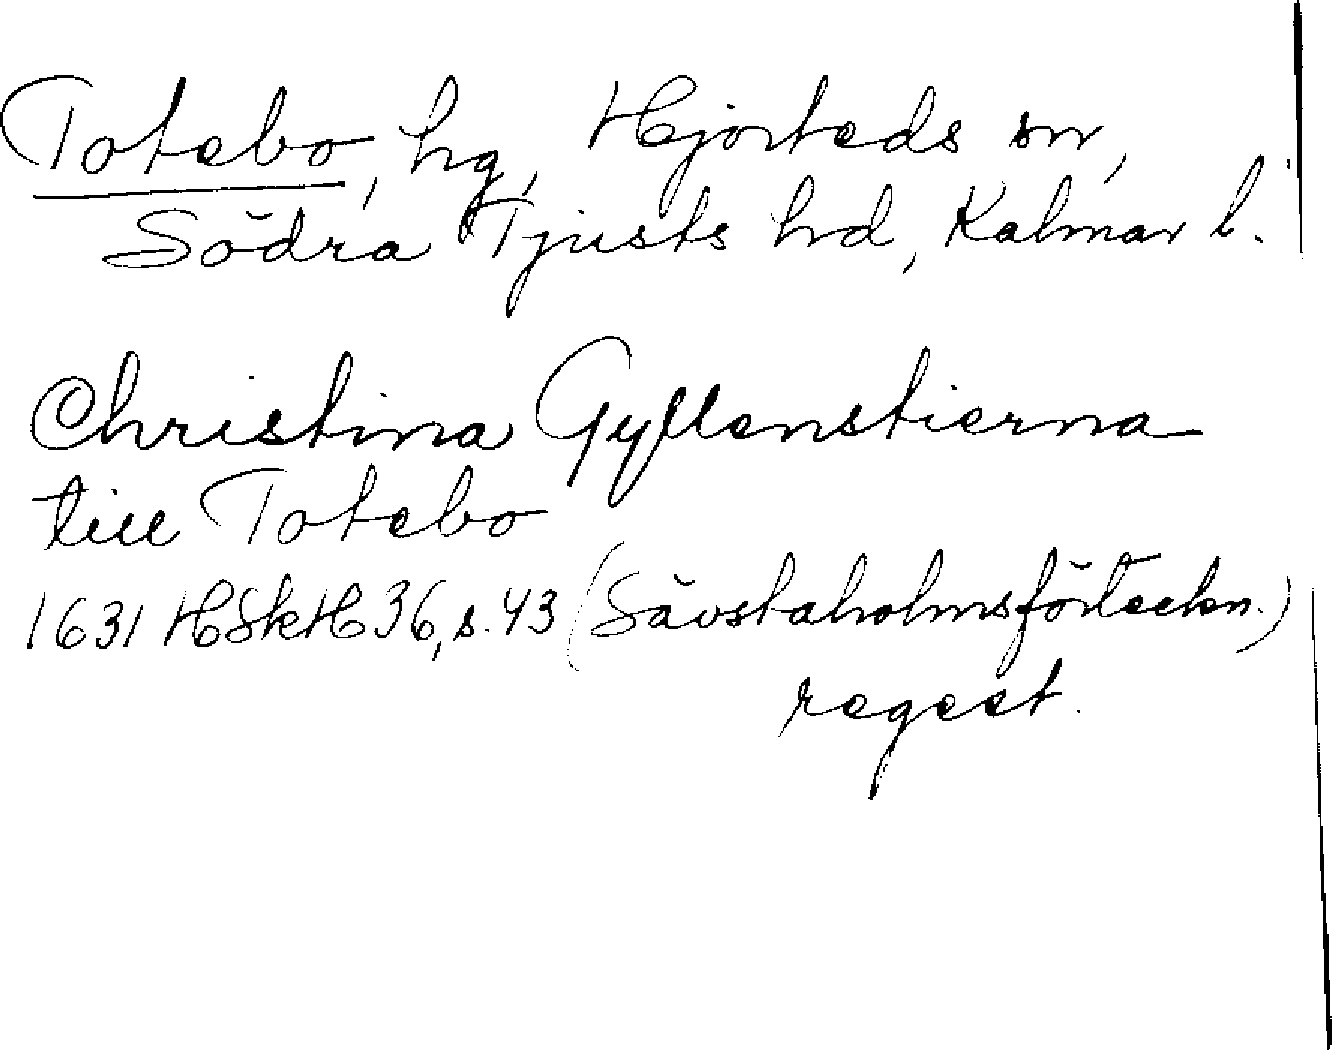 Totebo, hg, Hjorteds sn,
Södra Tjusts hd, Kalmar l.
Christina Gyllenstierna
till Totebo
1631 HSkH 36, s. 43 (Sävstaholmsförteckn.)
regest.